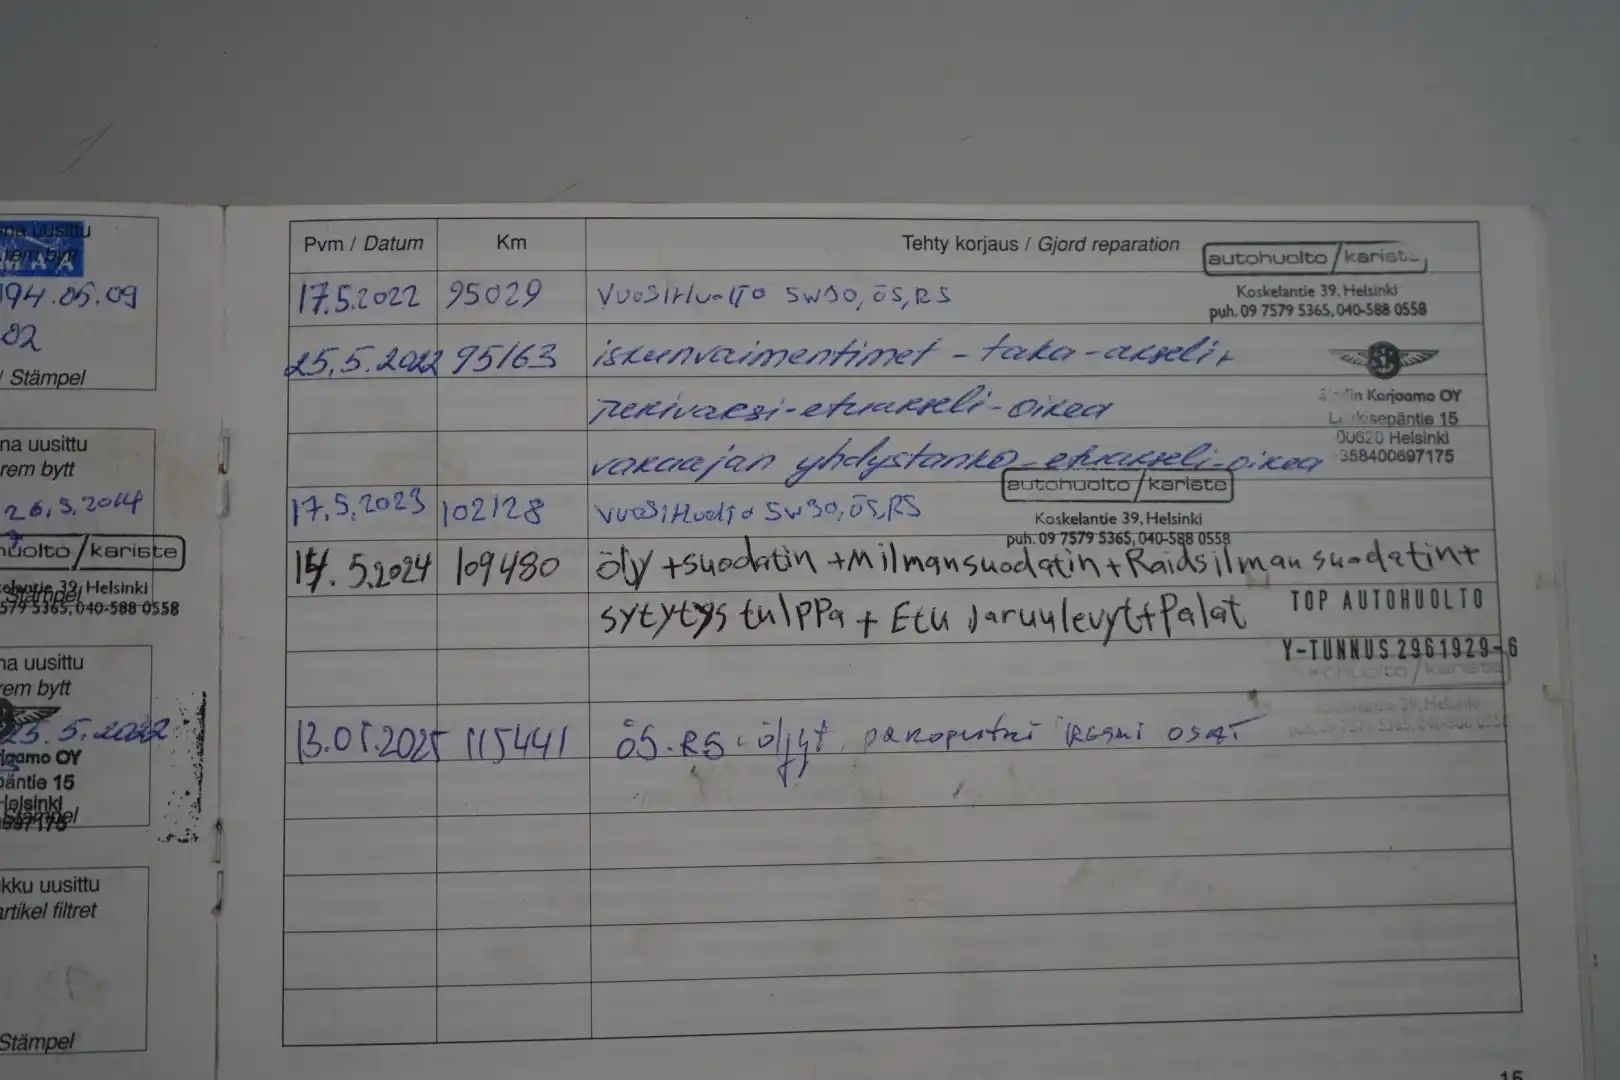 na uusittu
rem bytt
194.05.09
02
/ Stämpel
na uusittu
rem bytt
26.5.2014
huolto / kariste
Koskelantie 39, Helsinki
579 5365, 040-588 0558
Stämpel
na uusittu
rem bytt
25.5.2022
rjaamo OY
päntie 15
Helsinki
Stämpel
697175
kku uusittu
artikel filtret
Stämpel
Pvm / Datum Km Tehty korjaus / Gjord reparation
autohuolto / kariste
Koskelantie 39, Helsinki
puh. 09 7579 5365, 040-588 0558
17.5.2022 95029 VUOSIHUOLTO 5W30, ÖS, RS
25.5.2022 95163 iskunvaimentimet - taka-akseli,
in Korjaamo OY
pukivarsi - etuakseli - oikea
sepäntie 15
00620 Helsinki
vakaajan yhdystanko - etuakseli - oikea
358400697175
autohuolto / kariste
Koskelantie 39, Helsinki
puh. 09 7579 5365, 040-588 0558
17.5.2023 102128 VUOSIHUOLTO 5W30, ÖS, RS
14.5.2024 109480 Öly + suodatin + Milmansuodatin + Raidsilman suodatin +
sytytys tulppa + Etu Jaruulevyt + Palat
TOP AUTOHUOLTO
Y-TUNNUS 2961929-6
autohuolto / kariste
13.05.2025 115441 ÖS. RS öljyt
osat
15